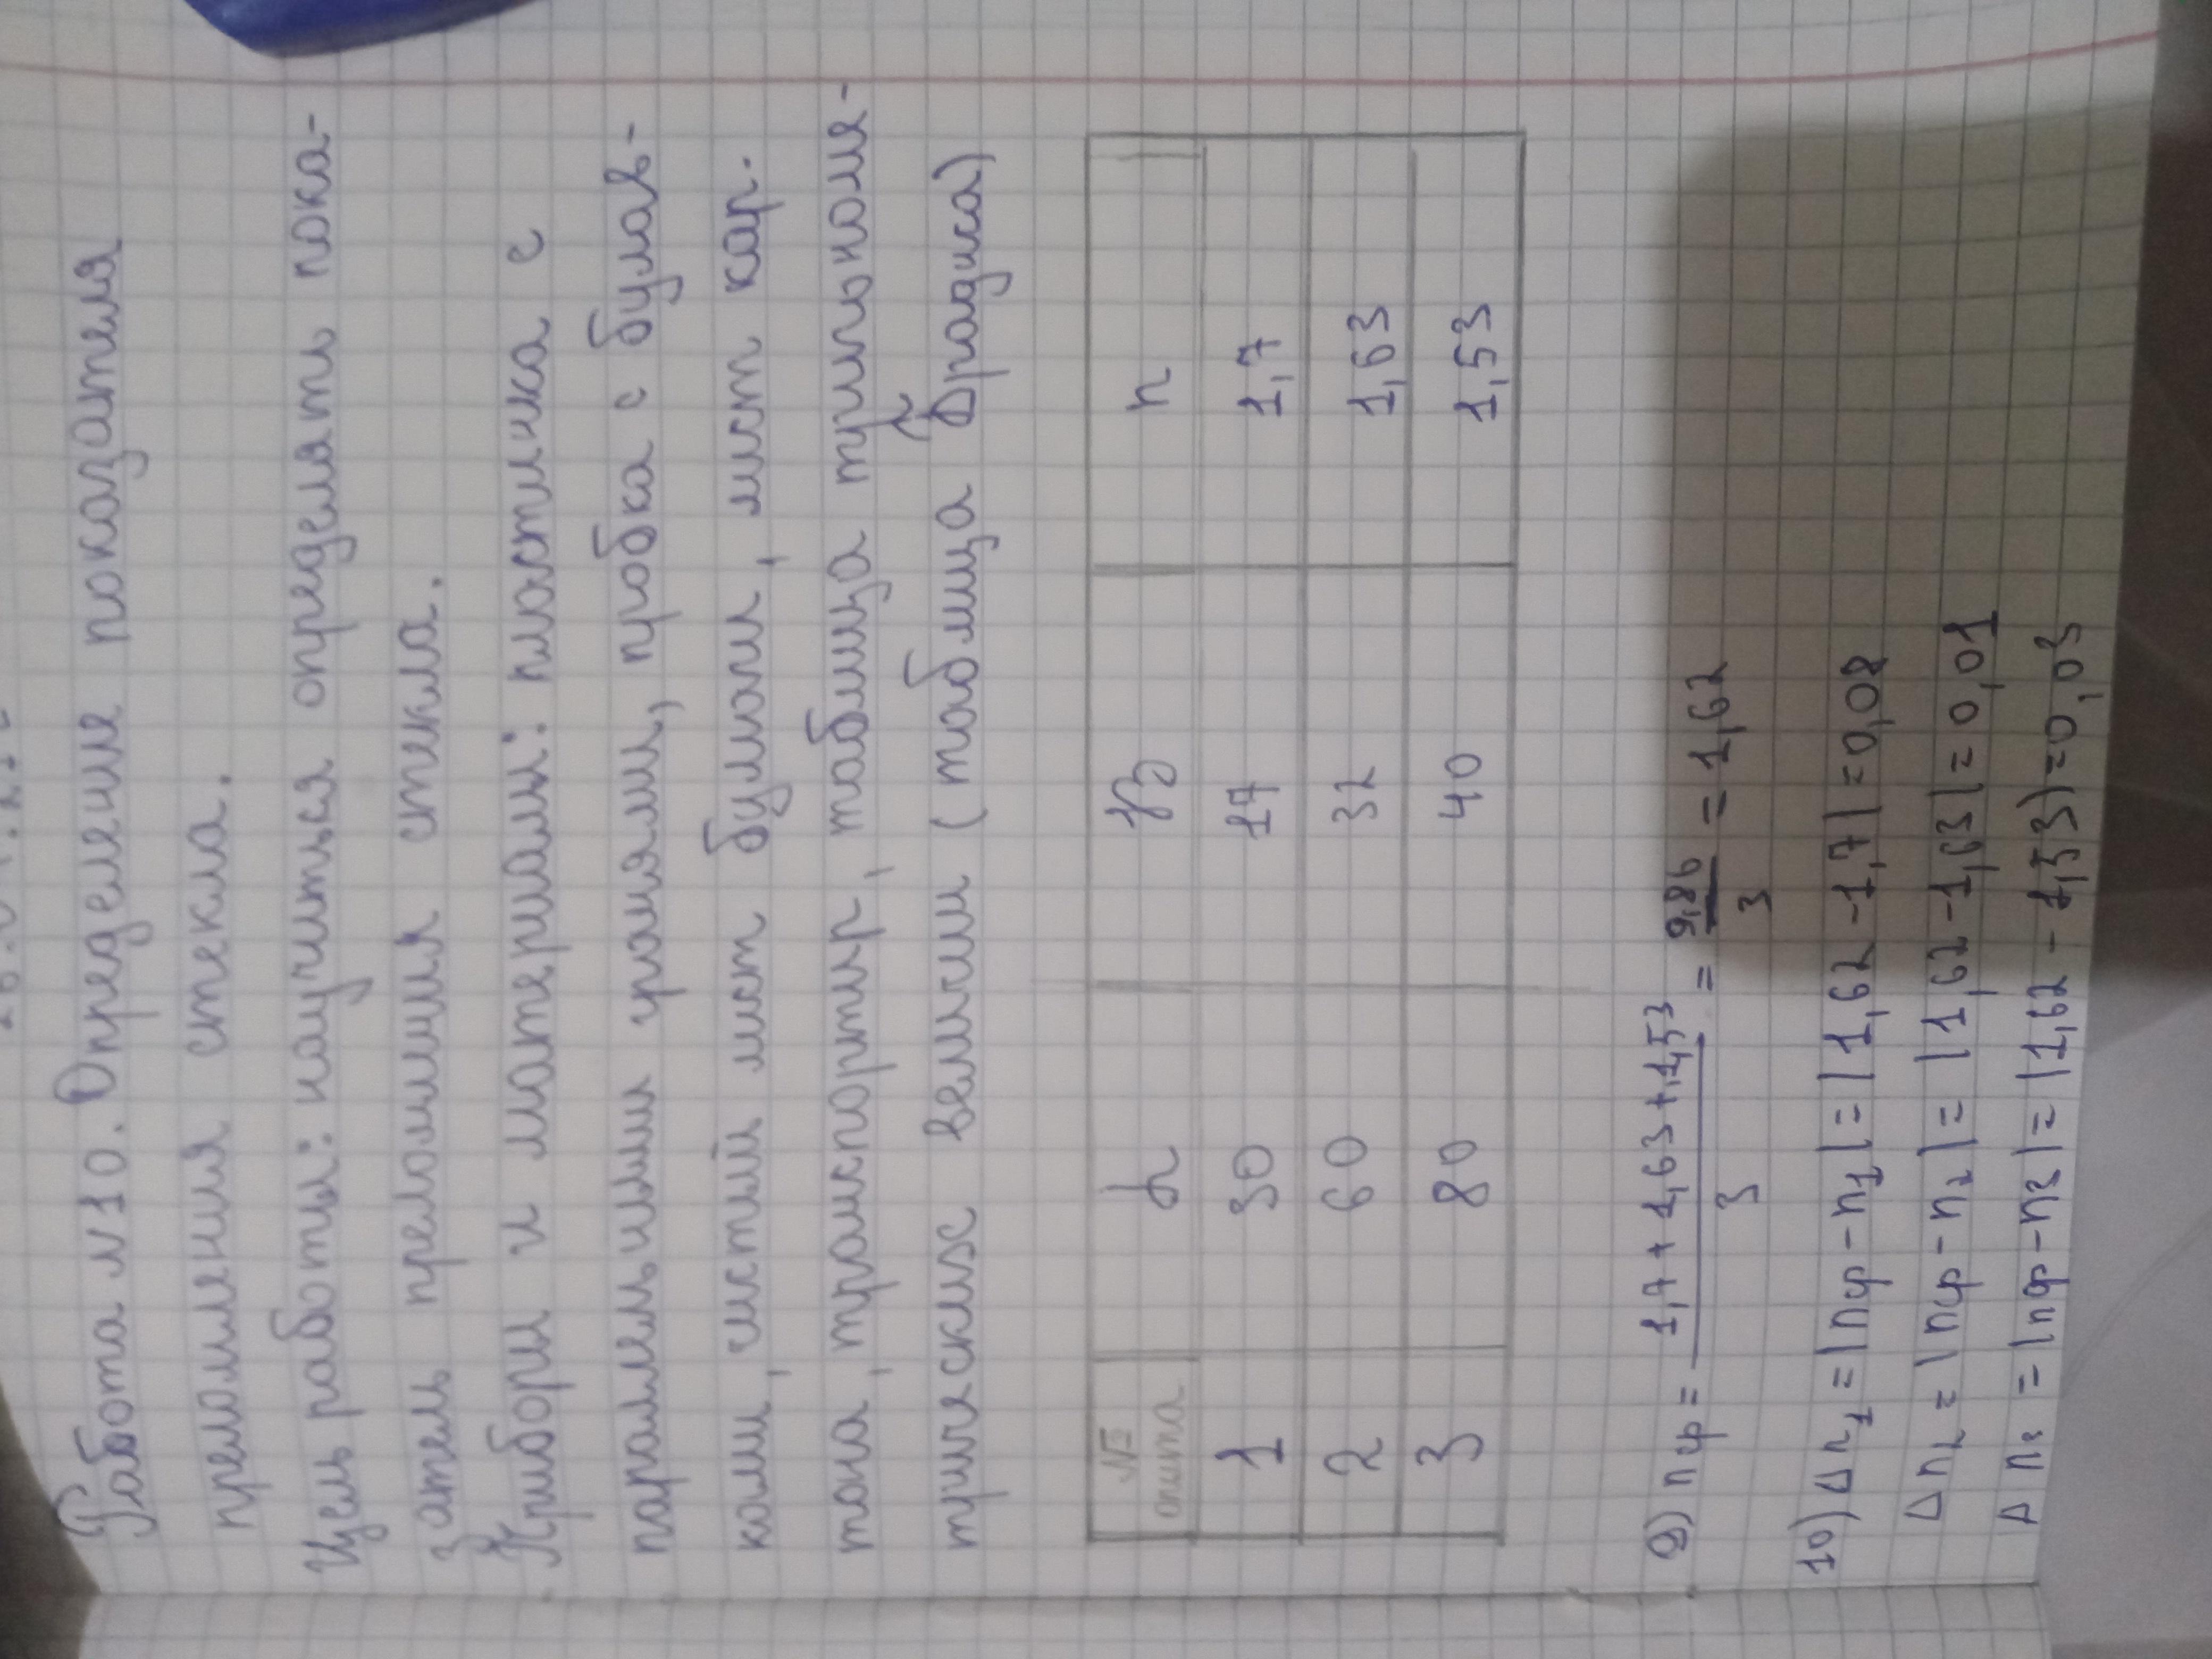 Работа №10. Определение показателя
преломления стекла.
Цель работы: научиться определять пока-
затель преломления стекла.
Приборы и материалы: пластинка с
параллельными гранями, пробка с булав-
ками, чистый лист бумаги, лист кар-
тона, транспортир, таблица тригономе-
трических величин (таблица Брадиса)
№ опыта α β n
1 30 17 1,7
2 60 32 1,63
3 80 40 1,53
9) nср = (1,7 + 1,63 + 1,53)/3 = 4,86/3 = 1,62
10) Δn₁ = |nср - n₁| = |1,62 - 1,7| = 0,08
Δn₂ = |nср - n₂| = |1,62 - 1,63| = 0,01
Δn₃ = |nср - n₃| = |1,62 - 1,53) = 0,09